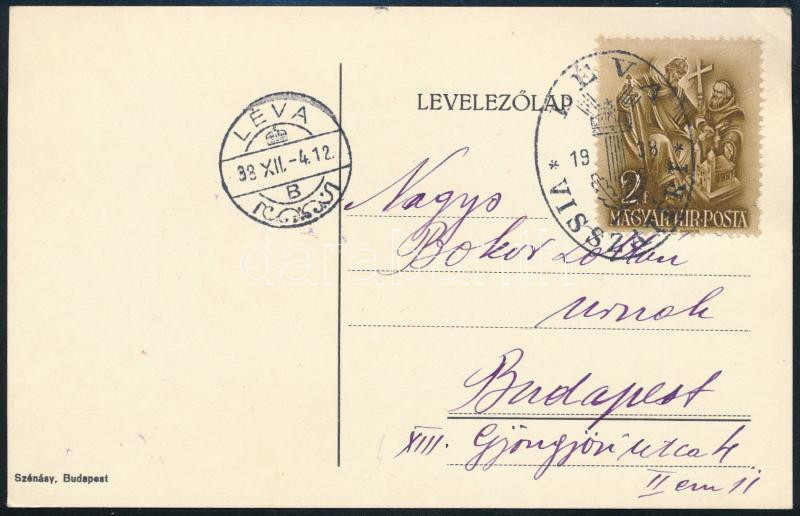 LEVELEZŐLAP
LÉVA
38 XII.-4.12.
B
LÉVA
19 38
* VISSZATÉRT *
2f
MAGYAR·KIR·POSTA
Nagys
Bokor Zoltán
urnak
Budapest
XIII. Gyöngyösi utca 4
II em 11
Szénásy, Budapest
darabanth